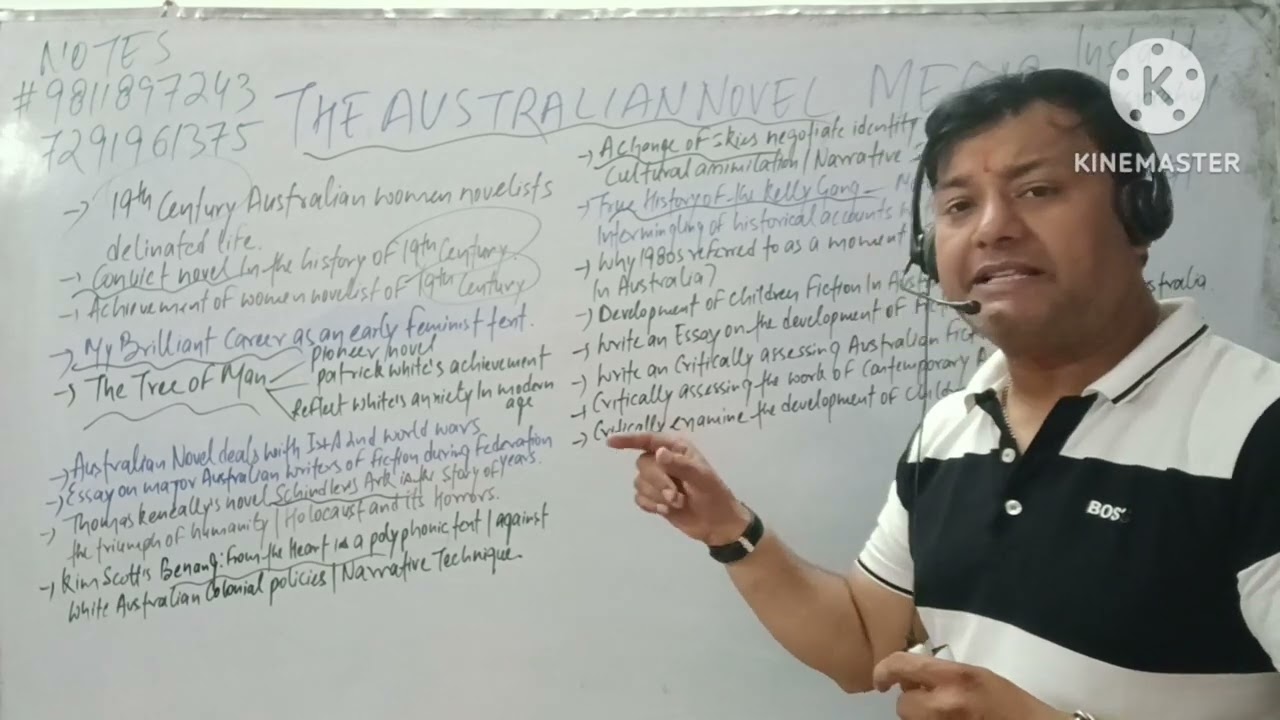 NOTES
#9811897243
7291961375
THE AUSTRALIAN NOVEL
→ 19th Century Australian women novelists
delinated life.
→ Convict novel In the history of 19th Century.
→ Achievement of women novelist of 19th Century
→ My Brilliant Career as an early feminist text.
→ The Tree of Man
pioneer novel
patrick white's achievement
Reflect white's anxiety In modern
age
→ Australian Novel deals with Ist & 2nd world wars
→ Essay on major Australian writers of fiction during Federation
years.
→ Thomas Keneally's novel Schindler's Ark is the story of
the triumph of humanity | Holocaust and its Horrors.
→ Kim Scott's Benang: from the Heart is a polyphonic text | against
white Australian Colonial policies | Narrative Technique
→ A change of skies negotiate identity
cultural assimilation | Narrative
→ True History of the Kelly Gang –
Intermingling of historical accounts
→ Why 1980s referred to as a moment
In Australia?
→ Development of children Fiction In
→ Write an Essay on the development of
→ Write an Critically assessing Australian
→ Critically assessing the work of Contemporary
→ Critically examine the development of
K
KINEMASTER
BOSS